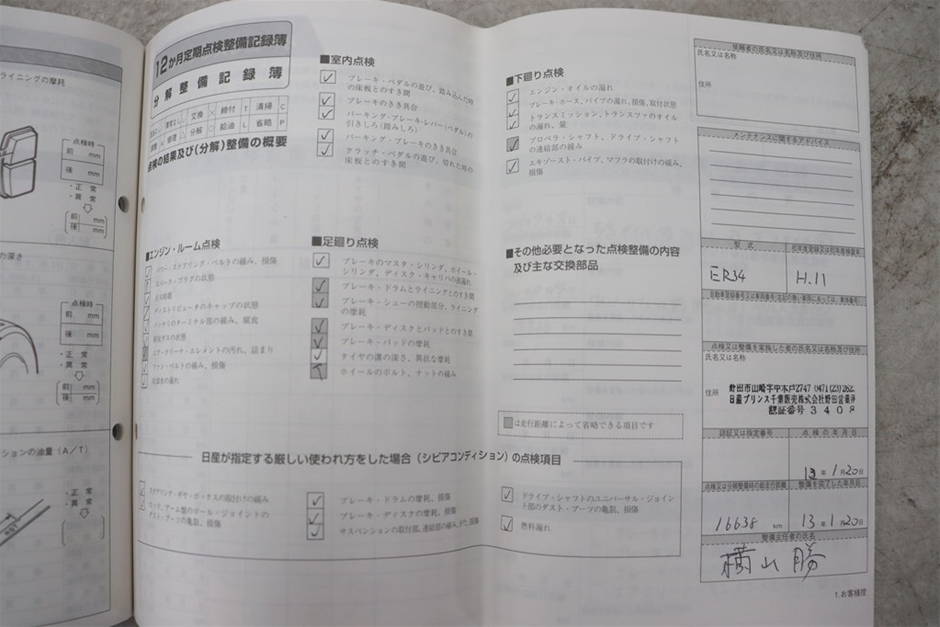 ライニングの摩耗
点検時
前 mm
後 mm
・正 常
・異 常
前 mm
後 mm
の深さ
点検時
前 mm
後 mm
・正 常
・異 常
前 mm
後 mm
ションの油量（A／T）
12か月定期点検整備記録簿
分解整備記録簿
交換 × 締付 T 清掃 C
分解 ○ 給油 L 省略 P
点検の結果及び(分解)整備の概要
■エンジン・ルーム点検
パワー・ステアリング・ベルトの緩み、損傷
スパーク・プラグの状態
点火時期
ディストリビュータのキャップの状態
バッテリのターミナル部の緩み、腐食
排気ガスの状態
エア・クリーナ・エレメントの汚れ、詰まり
ファン・ベルトの緩み、損傷
冷却水の漏れ
■室内点検
ブレーキ・ペダルの遊び、踏み込んだ時
の床板とのすき間
ブレーキのきき具合
パーキング・ブレーキ・レバー(ペダル)の
引きしろ(踏みしろ)
パーキング・ブレーキのきき具合
クラッチ・ペダルの遊び、切れた時の
床板とのすき間
■足廻り点検
ブレーキのマスタ・シリンダ、ホイール・
シリンダ、ディスク・キャリパの液漏れ
ブレーキ・ドラムとライニングとのすき間
ブレーキ・シューの摺動部分、ライニング
の摩耗
ブレーキ・ディスクとパッドとのすき間
ブレーキ・パッドの摩耗
タイヤの溝の深さ、異状な摩耗
ホイールのボルト、ナットの緩み
■下廻り点検
エンジン・オイルの漏れ
ブレーキ・ホース、パイプの漏れ、損傷、取付状態
トランスミッション、トランスファのオイル
の漏れ、量
プロペラ・シャフト、ドライブ・シャフト
の連結部の緩み
エキゾースト・パイプ、マフラの取付けの緩み、
損傷
■その他必要となった点検整備の内容
及び主な交換部品
は走行距離によって省略できる項目です
日産が指定する厳しい使われ方をした場合（シビアコンディション）の点検項目
ステアリング・ギヤ・ボックスの取付けの緩み
ロッド、アーム類のボール・ジョイントの
ダスト・ブーツの亀裂、損傷
ブレーキ・ドラムの摩耗、損傷
ブレーキ・ディスクの摩耗、損傷
サスペンションの取付部、連結部の緩み、がた、損傷
ドライブ・シャフトのユニバーサル・ジョイン
ト部のダスト・ブーツの亀裂、損傷
燃料漏れ
依頼者の氏名又は名称及び住所
氏名又は名称
住所
メンテナンスに関するアドバイス
型 式
初年度登録又は初年度検査年
ER34
H.11
点検又は整備を実施した者の氏名又は名称及び住所
氏名又は名称
住所
野田市山崎字中木戸2747
日産プリンス千葉販売株式会社野田営業所
認証番号 3408
認証又は指定番号
点検の年月日
13年1月20日
点検又は分解整備時の総走行距離
整備を完了した年月日
16638 km
13年1月20日
整備主任者の氏名
横山 勝
1.お客様控